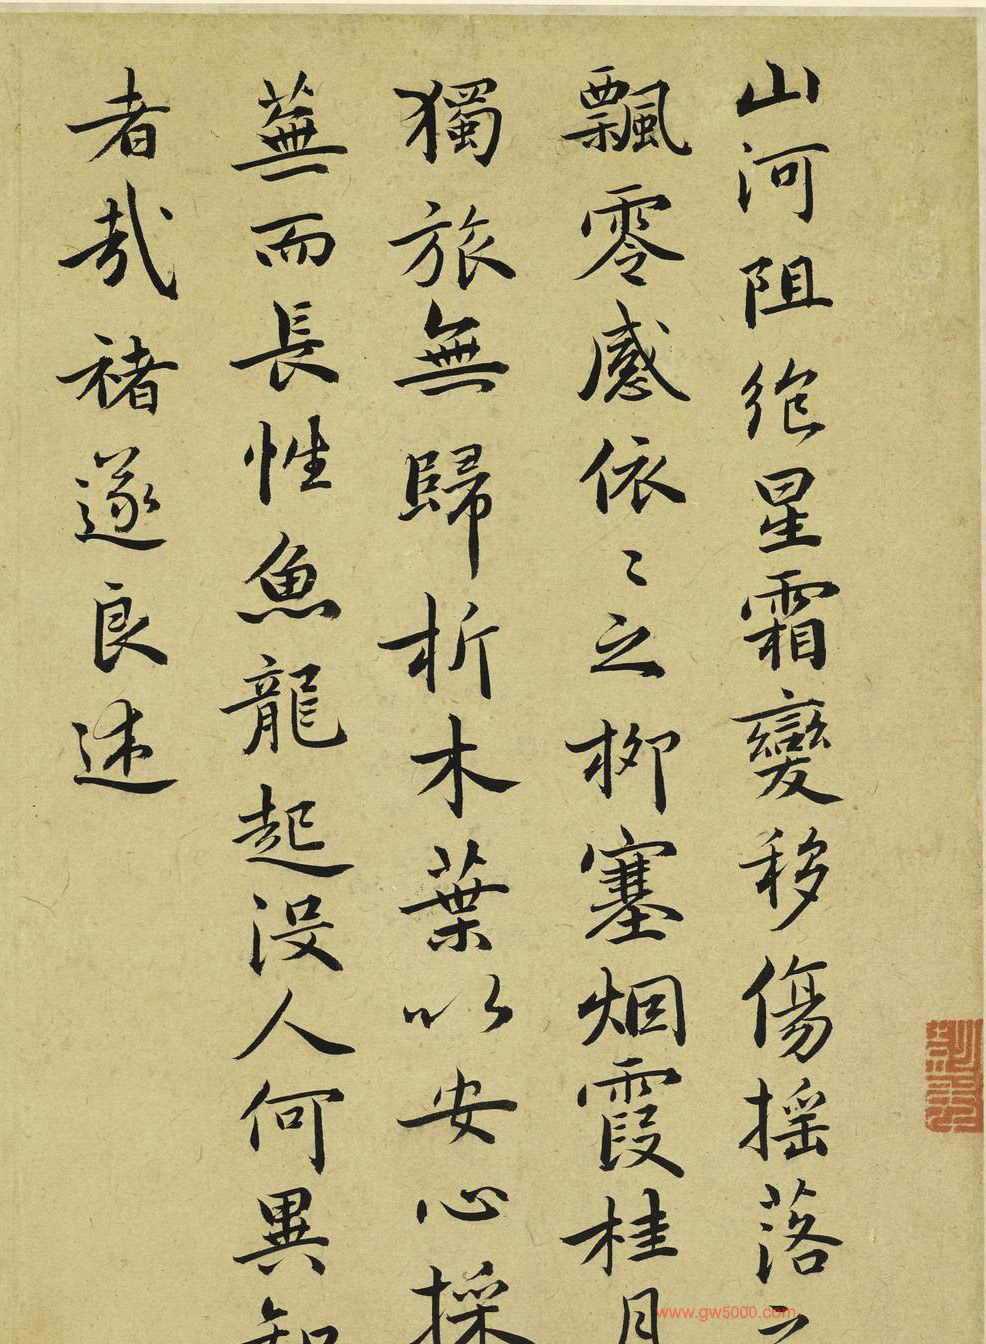 山河阻絶星霜變移傷摇落之
飄零感依〻之柳塞烟霞桂月
獨旅無歸折木葉以安心採
蕪而長性魚龍起没人何異知
者哉褚遂良述
www.gw5000.com